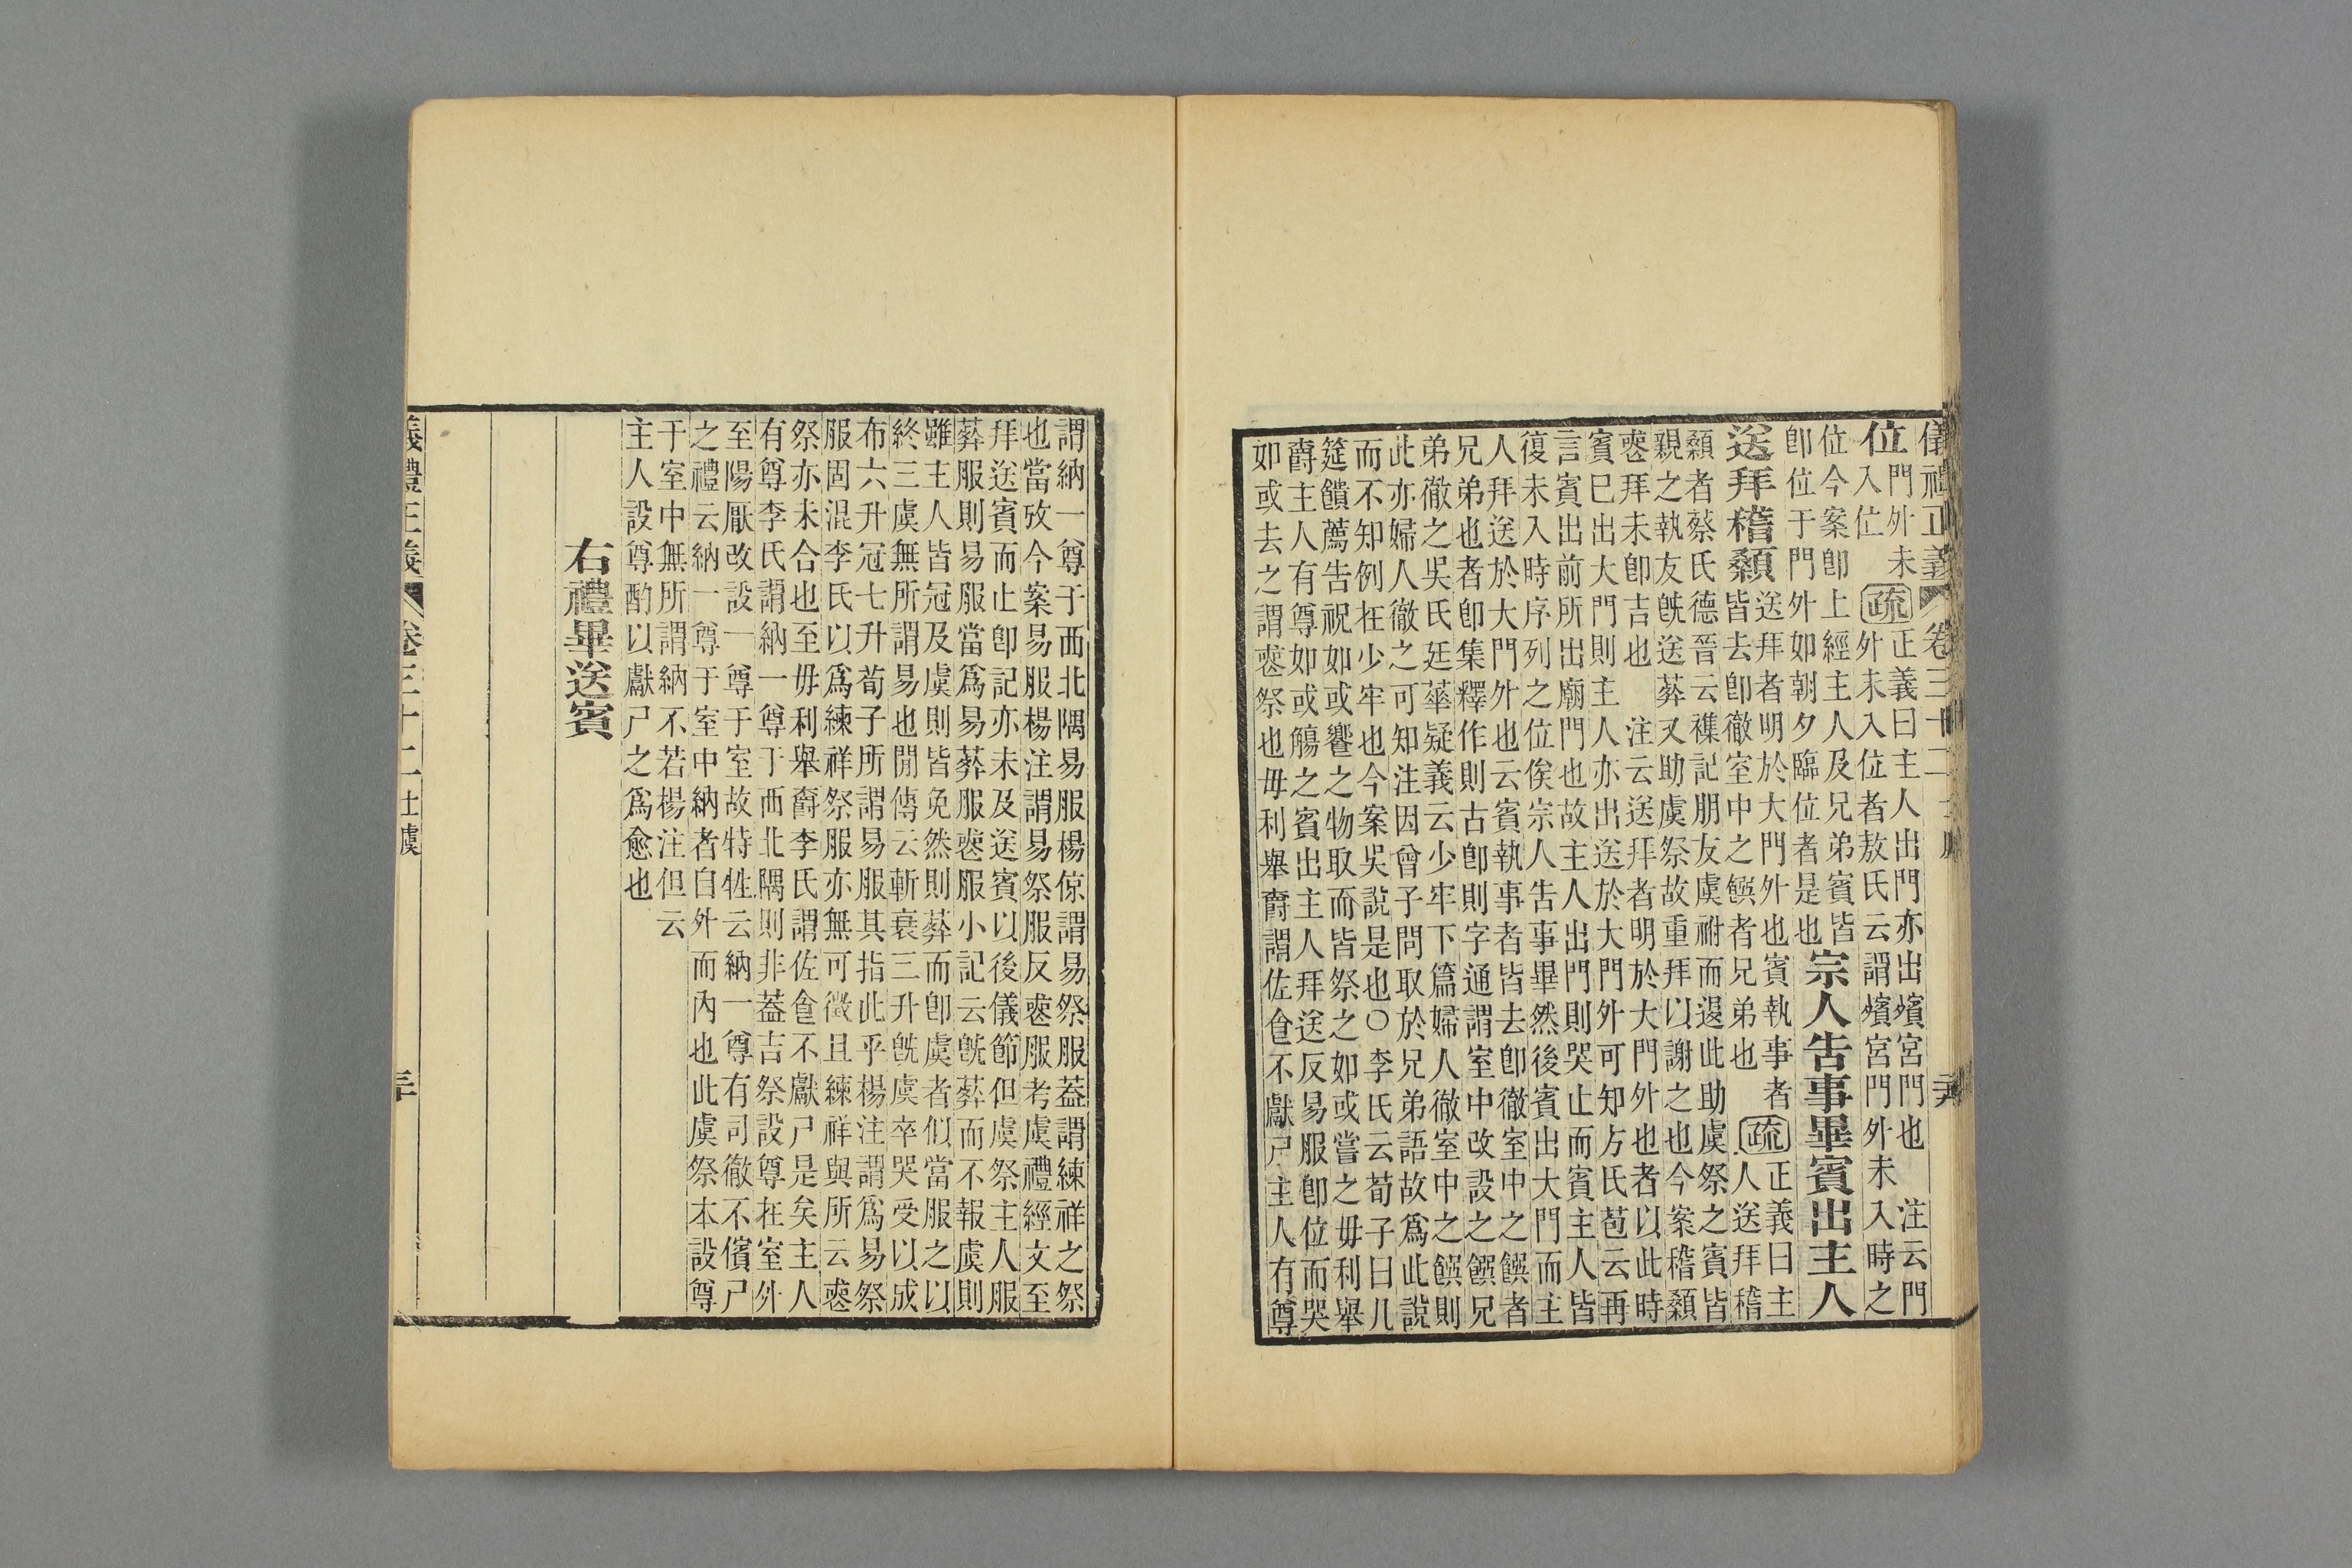 儀禮正義 卷三十二 士虞
位門外未
入位疏正義曰主人出門亦出殯宮門也 注云門
外未入位者敖氏云謂殯宮門外未入時之
位今案卽上經主人及兄弟賓皆
卽位于門外如朝夕臨位者是也宗人告事畢賓出主人
送拜稽顙送拜者明於大門外也賓執事者
皆去卽徹室中之饌者兄弟也疏正義曰主
人送拜稽
顙者蔡氏德晉云襍記朋友虞祔而退此助虞祭之賓皆
親之執友旣送葬又助虞祭故重拜以謝之也今案稽顙
喪拜未卽吉也 注云送拜者明於大門外也者以此時
賓已出大門則主人亦出送於大門外可知方氏苞云再
言賓出前所出廟門也故主人出門則哭止而賓主人皆
復未入時序列之位俟宗人告事畢然後賓出大門而主
人拜送於大門外也云賓執事者皆去卽徹室中之饌者
兄弟也者卽集釋作則古卽則字通謂室中改設之饌兄
弟徹之吳氏廷華疑義云少牢下篇婦人徹室中之饌則
此亦婦人徹之可知注因曾子問取於兄弟語故爲此說
而不知例在少牢也今案吳說是也○李氏云荀子曰几
筵饋薦告祝如或饗之物取而皆祭之如或嘗之毋利舉
爵主人有尊如或觴之賓出主人拜送反易服卽位而哭
如或去之謂喪祭也毋利舉爵謂佐食不獻尸主人有尊
謂納一尊于西北隅易服楊倞謂易祭服蓋謂練祥之祭
也當攷今案易服楊注謂易祭服反喪服考虞禮經文至
拜送賓而止卽記亦未及送賓以後儀節但虞祭主人服
葬服則易服當爲易葬服喪服小記云旣葬而不報虞則
雖主人皆冠及虞則皆免然則葬而卽虞者似當服之以
終三虞無所謂易也閒傳云斬衰三升旣虞卒哭受以成
布六升冠七升荀子所謂易服其指此乎楊注謂爲易祭
服固混李氏以爲練祥祭服亦無可徵且練祥與所云喪
祭亦未合也至毋利舉爵李氏謂佐食不獻尸是矣主人
有尊李氏謂納一尊于西北隅則非蓋吉祭設尊在室外
至陽厭改設一尊于室故特牲云納一尊有司徹不儐尸
之禮云納一尊于室中納者自外而內也此虞祭本設尊
于室中無所謂納不若楊注但云
主人設尊酌以獻尸之爲愈也
右禮畢送賓
儀禮正義 卷三十二 士虞 三十